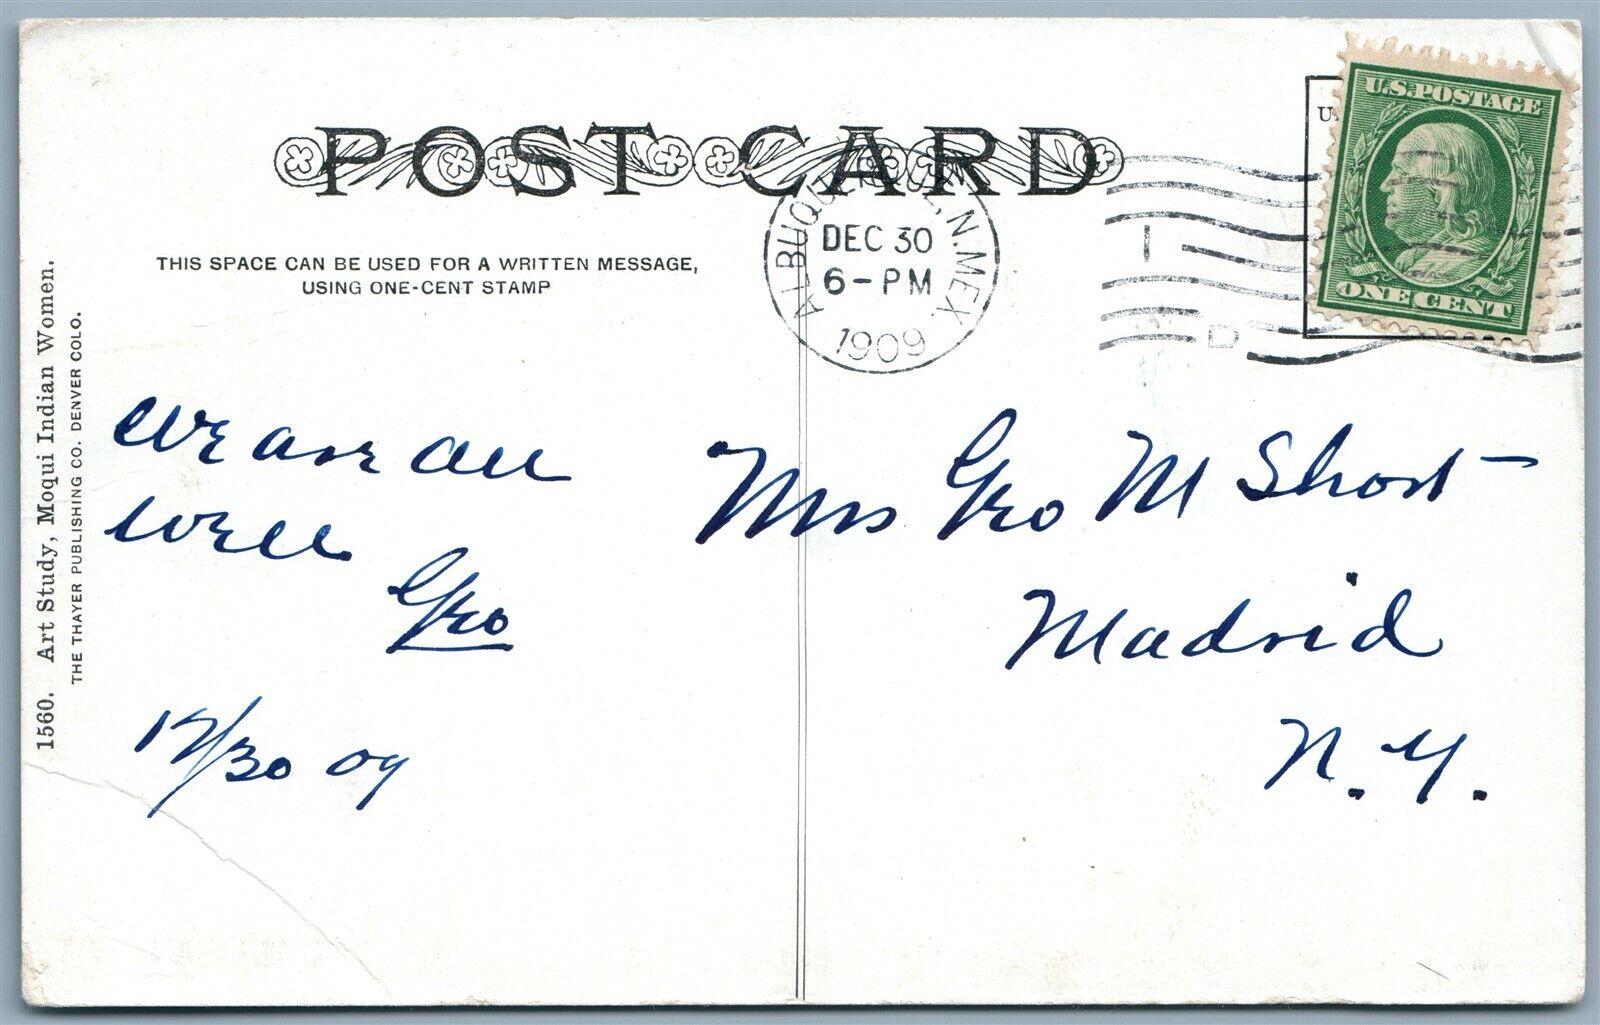 POST CARD
THIS SPACE CAN BE USED FOR A WRITTEN MESSAGE,
USING ONE-CENT STAMP
ALBUQUERQUE, N. MEX.
DEC 30
6-PM
1909
I
D
U.
U.S. POSTAGE
ONE CENT
1560. Art Study, Moqui Indian Women.
THE THAYER PUBLISHING CO. DENVER COLO.
We are all
well
Geo
12/30 09
Mrs Geo M Short
Madrid
N.Y.